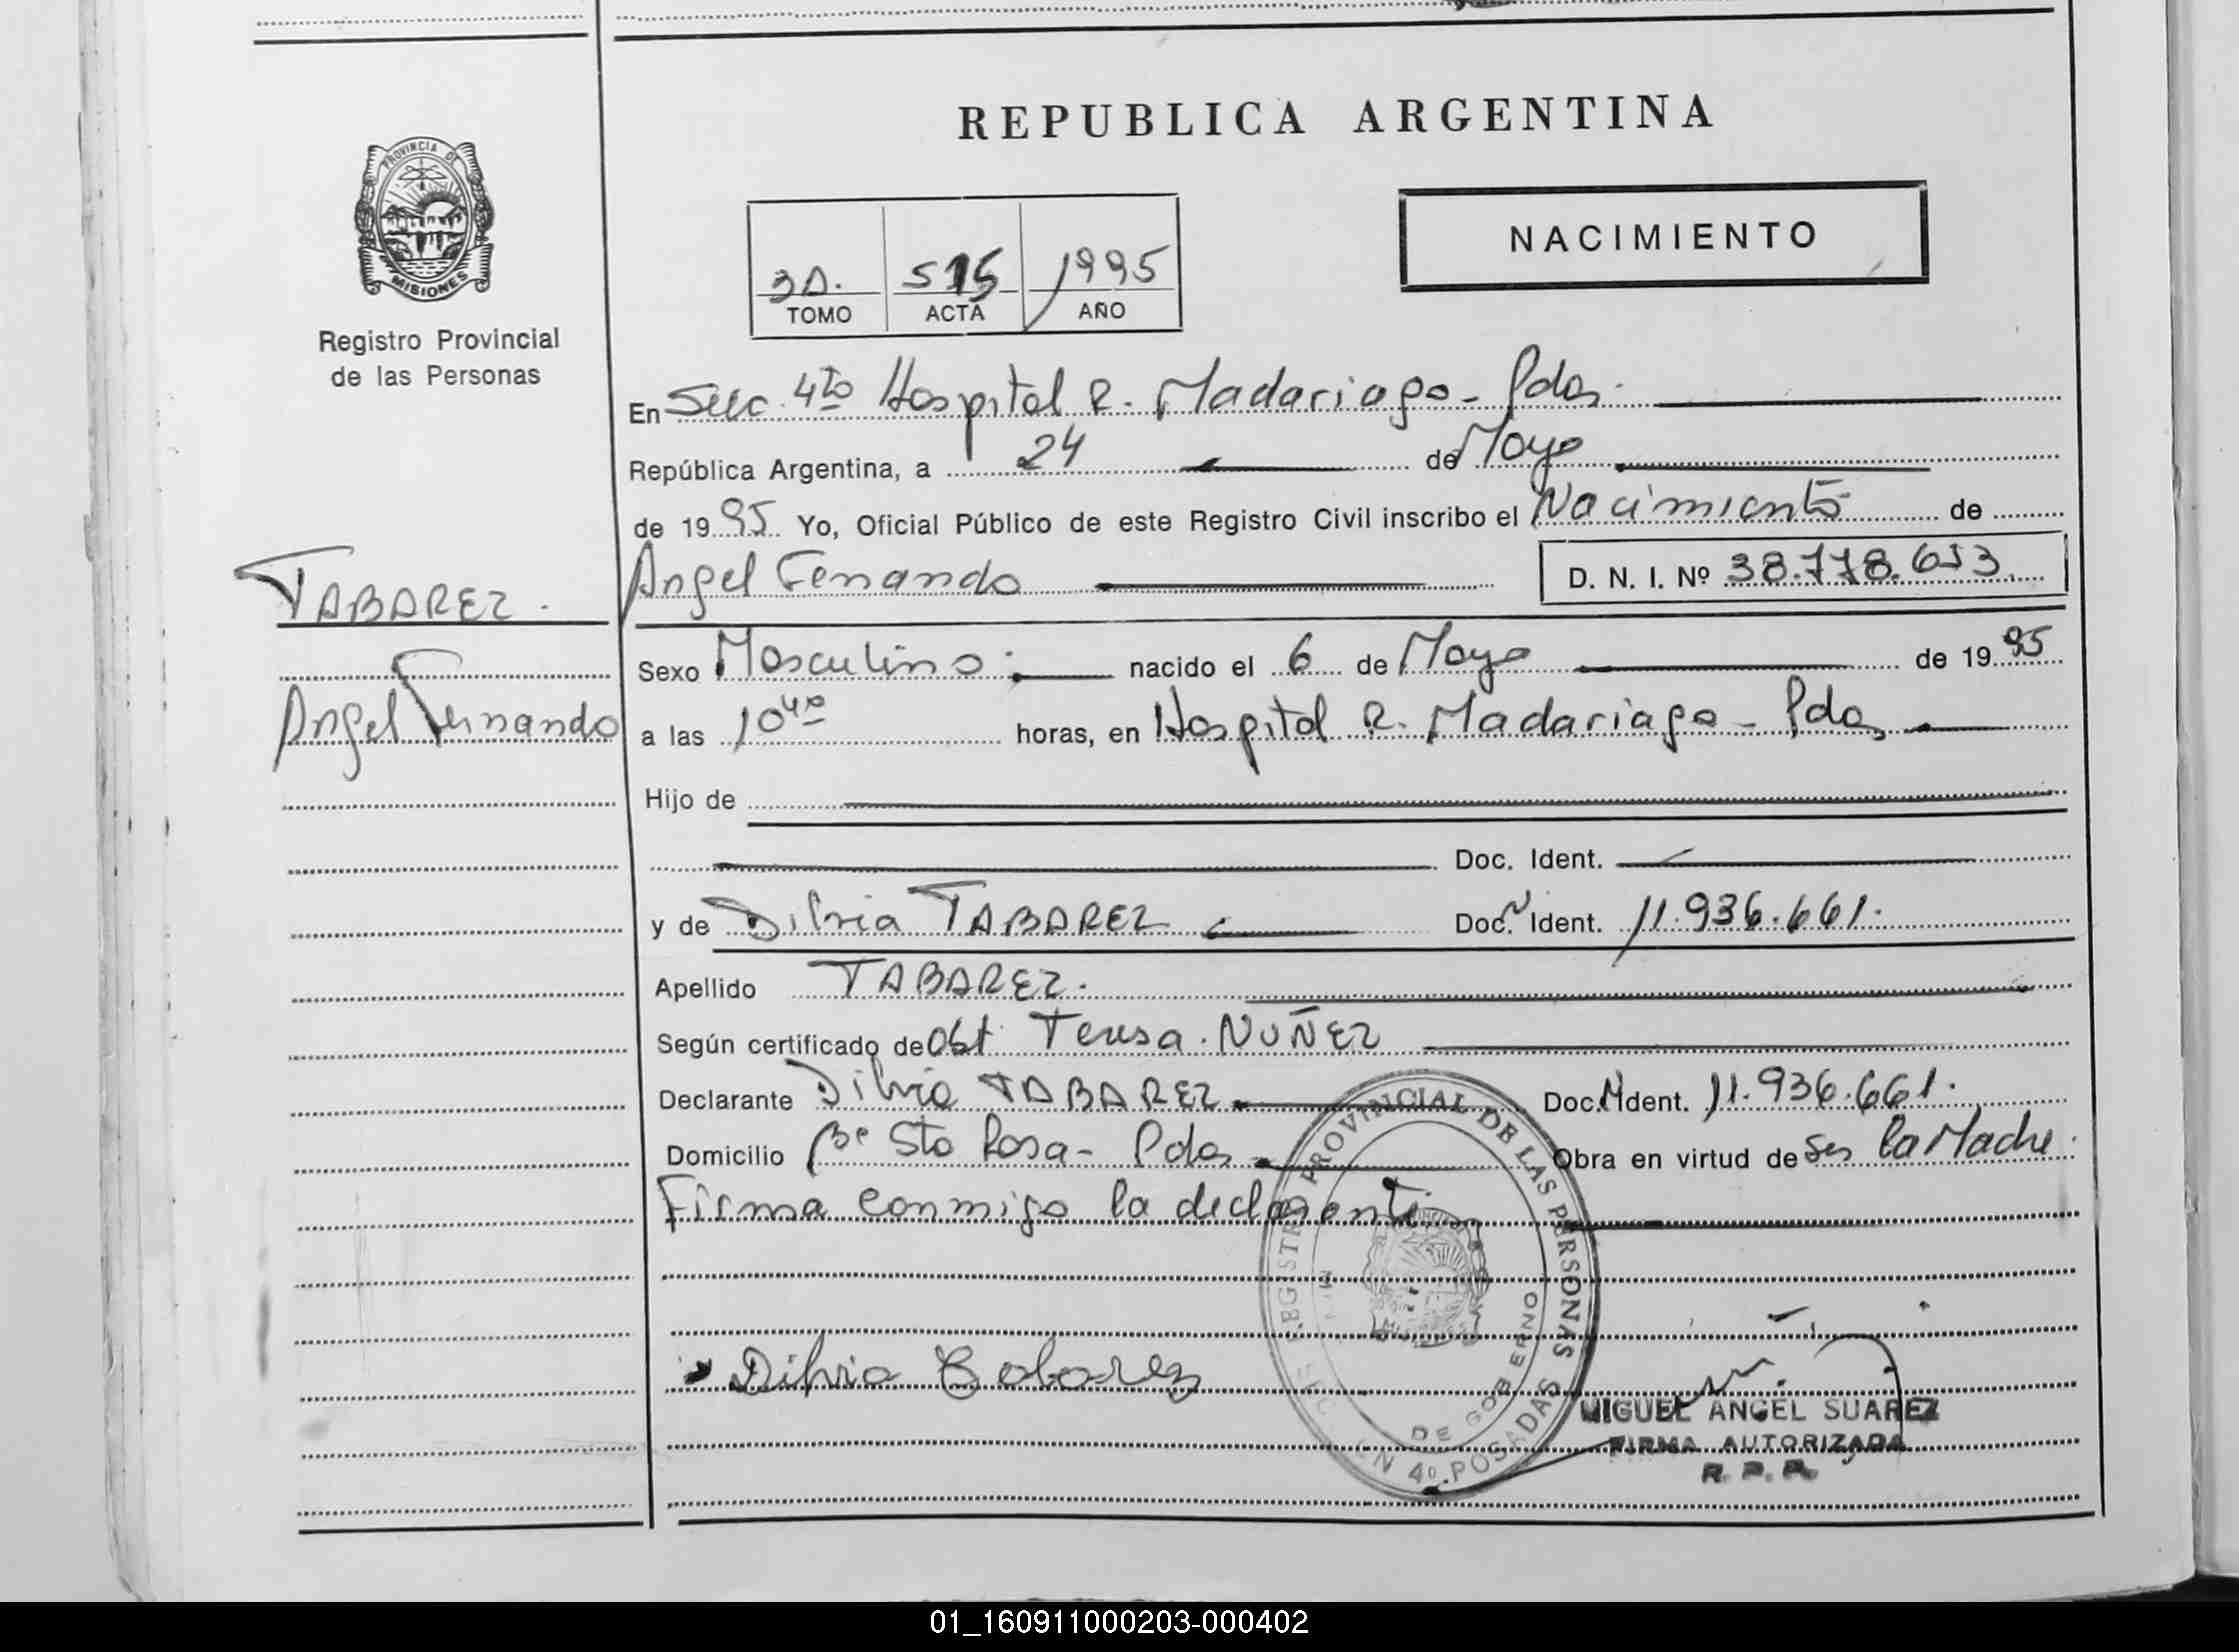 REPUBLICA ARGENTINA
PROVINCIA DE
MISIONES
Registro Provincial
de las Personas
NACIMIENTO
1995
TOMO ACTA AÑO
En Secc. 4ta Hospital R. Madariaga - Pdas.
República Argentina, a 24 de Mayo
de 1995 Yo, Oficial Público de este Registro Civil inscribo el Nacimiento de
TABAREZ.
Angel Fernando D. N. I. Nº 38.778.653
Angel Fernando
Sexo Masculino. nacido el 6 de Mayo de 1995
a las 10 40 horas, en Hospital R. Madariaga - Pdas
Hijo de
Doc. Ident.
y de Dilvia TABAREZ Doc. Ident. 11.936.661.
Apellido TABAREZ.
Según certificado de Obt. Teresa NUÑEZ
Declarante Dilvia TABAREZ Doc. Ident. 11.936.661.
Domicilio Bº Sta Rosa - Pdas Obra en virtud de ser la Madre.
Firma conmigo la declarante
Dilvia Tabarez
REGISTRO PROVINCIAL DE LAS PERSONAS
DE GOBERNO
4º POSADAS
MIGUEL ANGEL SUAREZ
FIRMA AUTORIZADA
R. P. P.
01_160911000203-000402